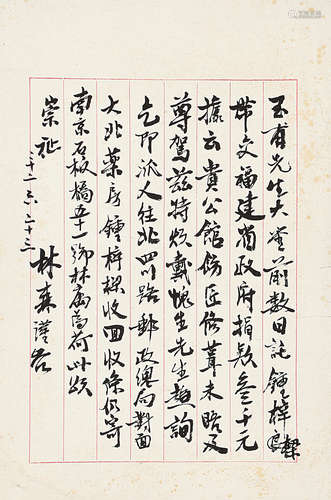 玉甫先生大鉴前數日託鍾梓樑
帶交福建省政府捐欵叁千元
據云貴公館倩匠修葺未晤及
尊駕兹特煩戴愧生先生趨詢
乞即派人往北四川路郵政總局對面
大北藥房鍾梓樑收回收條仍寄
南京石板橋五十一號林寓為荷此頌
崇祉
林森謹啓
十二六二十三